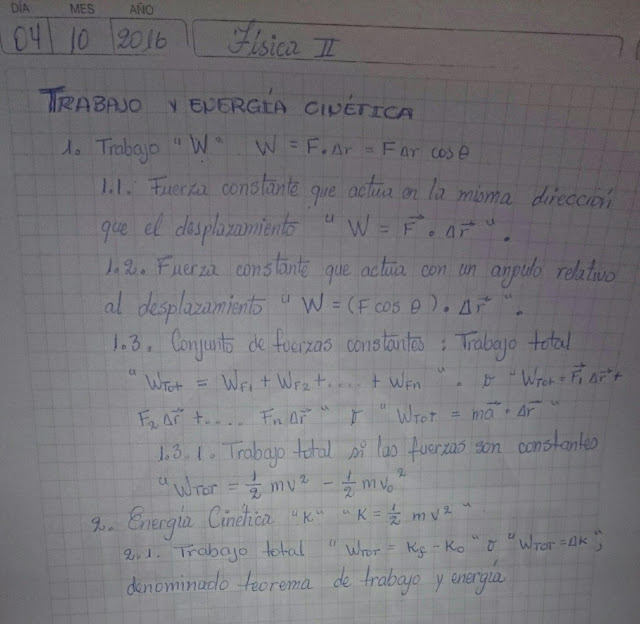 DÍA MES AÑO
04 10 2016 Física II
TRABAJO Y ENERGÍA CINÉTICA
1. Trabajo "W" W = F · Δr = F Δr cos θ
1.1. Fuerza constante que actúa en la misma dirección
que el desplazamiento " W = F⃗ · Δr⃗ ".
1.2. Fuerza constante que actua con un angulo relativo
al desplazamiento " W = (F cos θ) · Δr⃗ ".
1.3. Conjunto de fuerzas constantes: Trabajo total
" W_Tot = W_F1 + W_F2 + .... + W_Fn ". o " W_Tot = F⃗₁ Δr⃗ +
F₂ Δr⃗ + .... Fn Δr⃗ " o " W_TOT = ma⃗ · Δr⃗ "
1.3.1. Trabajo total si las fuerzas son constantes
" W_TOT = 1/2 mv² - 1/2 mv₀²
2. Energía Cinética "K" " K = 1/2 mv² "
2.1. Trabajo total " W_TOT = K_f - K_o " o " W_TOT = ΔK ";
denominado teorema de trabajo y energía